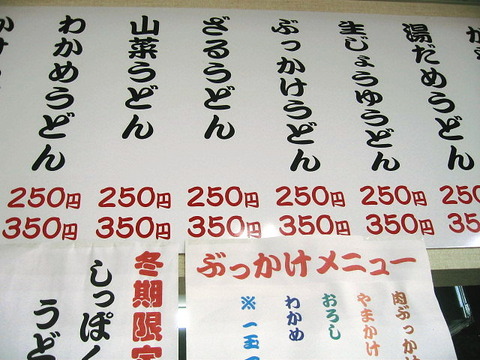 湯だめうどん
250
350
生じょうゆうどん
250円
350円
ぶっかけうどん
250円
350円
ざるうどん
250円
350円
山菜うどん
250円
350円
わかめうどん
250円
350円
ぶっかけメニュー
肉ぶっかけ
やまかけ
おろし
わかめ
※一玉
冬期限定
しっぽく
うど